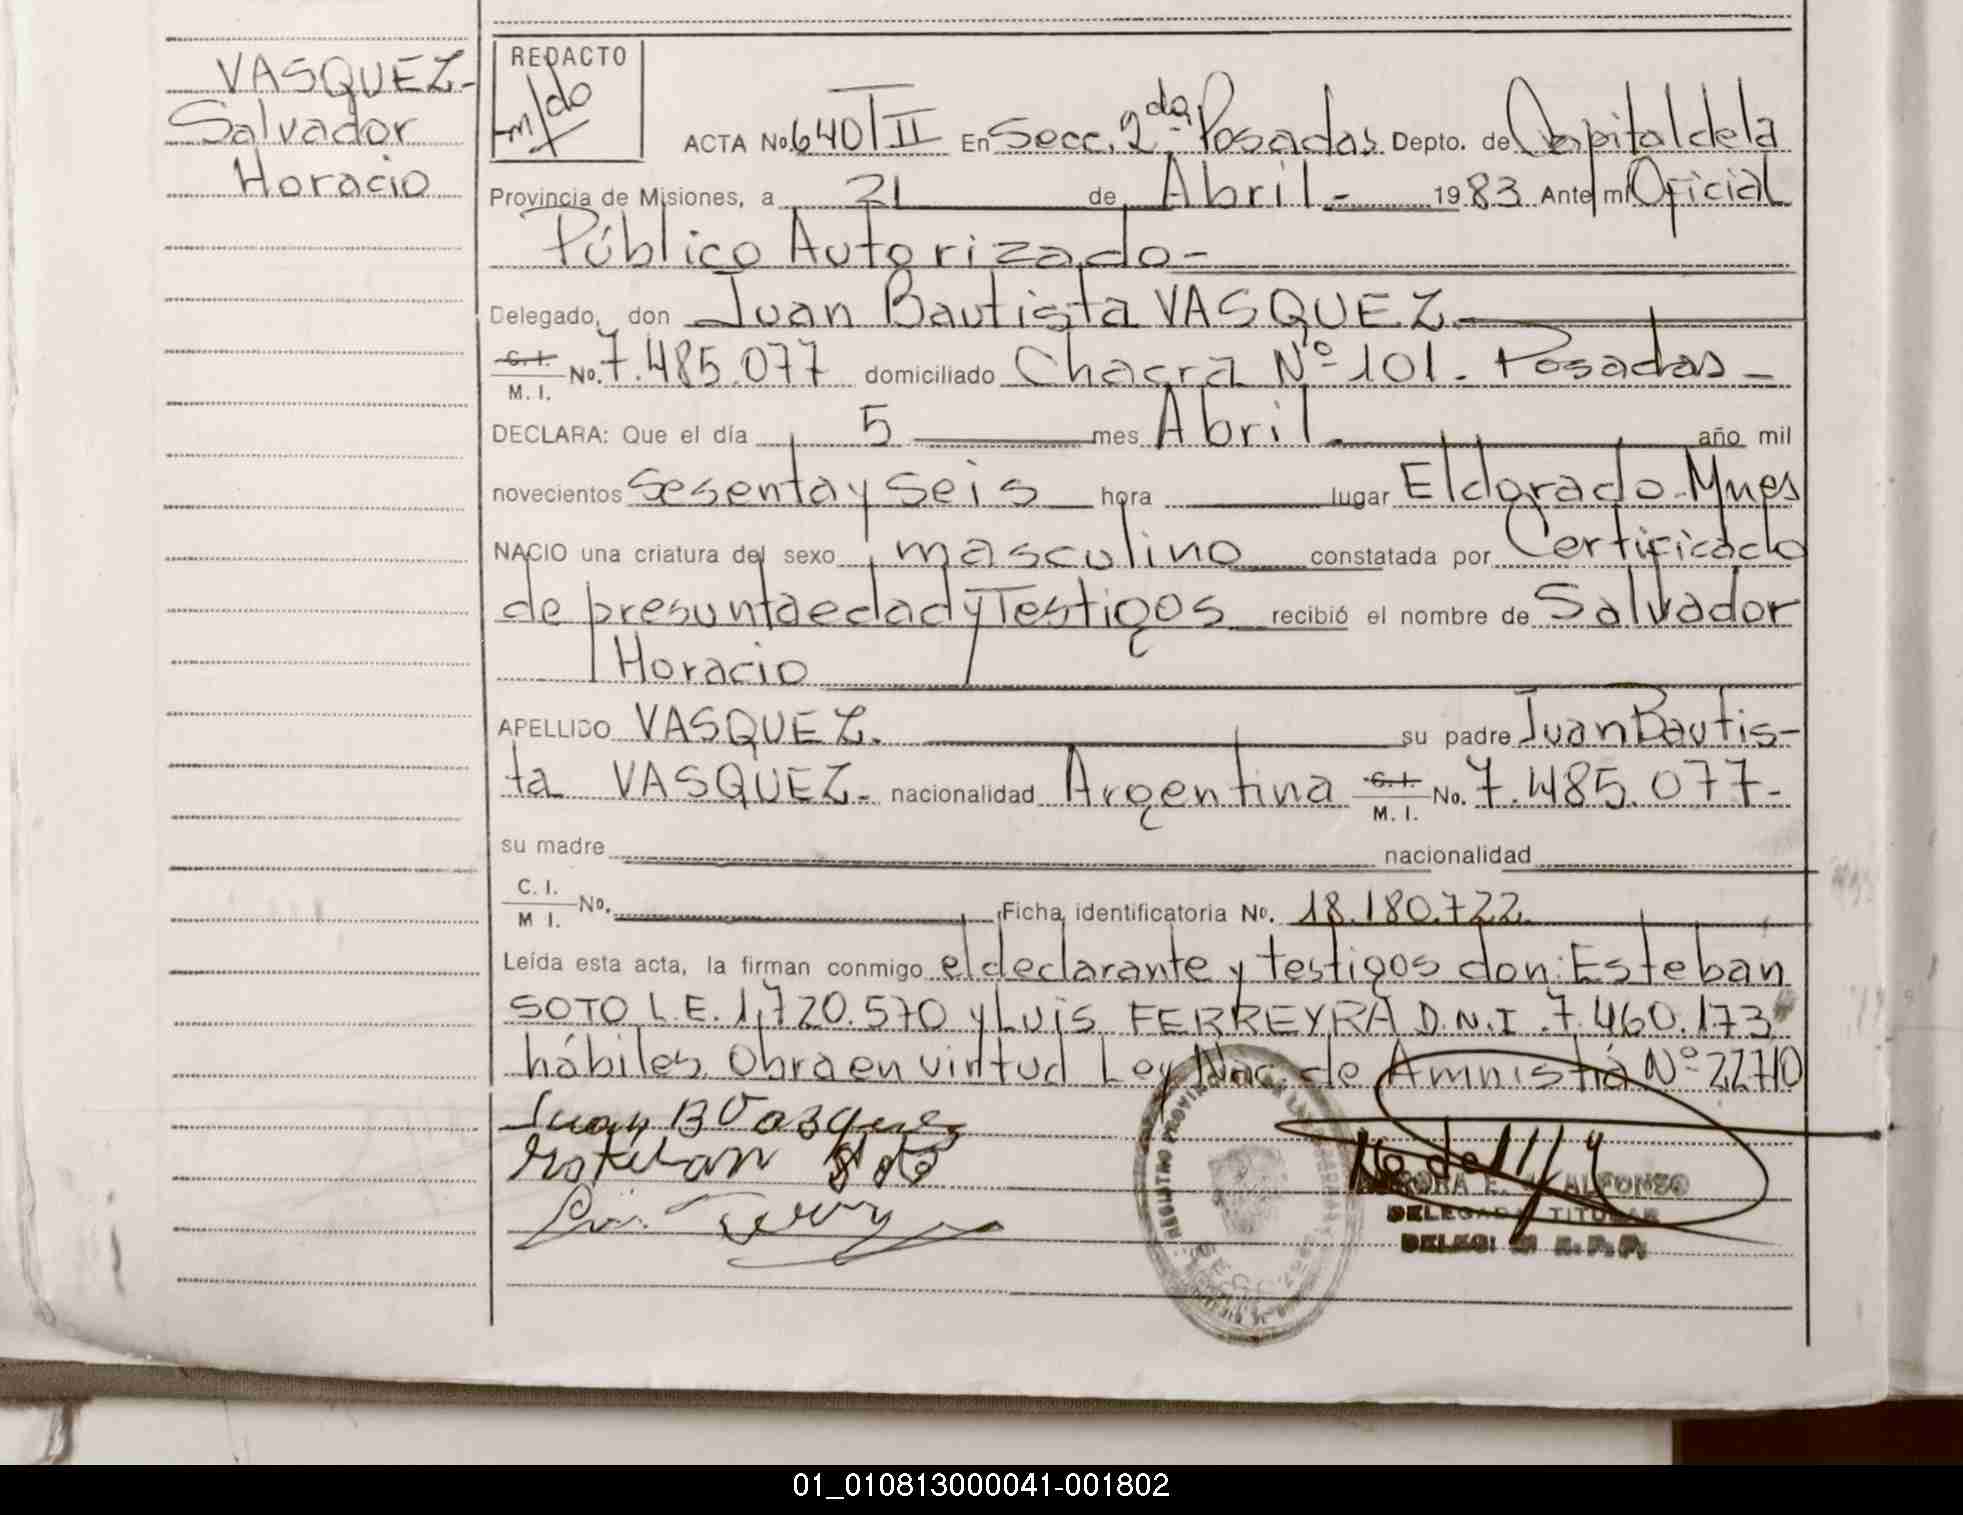 VASQUEZ-
Salvador
Horacio
REDACTO
ACTA No. 640 T II En Secc. 2da. Posadas Depto. de Capital de la
Provincia de Misiones, a 21 de Abril.- 1983 Ante mi Oficial
Público Autorizado-
Delegado, don Juan Bautista VASQUEZ.
C. I. M. I. No. 7.485.077 domiciliado Chacra Nº 101. Posadas-
DECLARA: Que el día 5 mes Abril. año mil
novecientos sesenta y seis hora lugar Eldorado-Mnes
NACIO una criatura del sexo masculino constatada por Certificado
de presunta edad y Testigos recibió el nombre de Salvador
Horacio
APELLIDO VASQUEZ. su padre Juan Bautis-
ta VASQUEZ- nacionalidad Argentina C. I. M. I. No. 7.485.077-
su madre nacionalidad
C. I. M I. No. Ficha identificatoria No. 18.180.722
Leída esta acta, la firman conmigo el declarante y testigos don: Esteban
SOTO L.E. 1.720.570 y Luis FERREYRA D.N.I. 7.460.173
hábiles. Obra en virtud Ley Nac. de Amnistía Nº 22710
Juan B Vasquez
Esteban Soto
REGISTRO PROVINCIAL DE LAS PERSONAS
E. ALFONSO
DELEGADA TITULAR
01_010813000041-001802